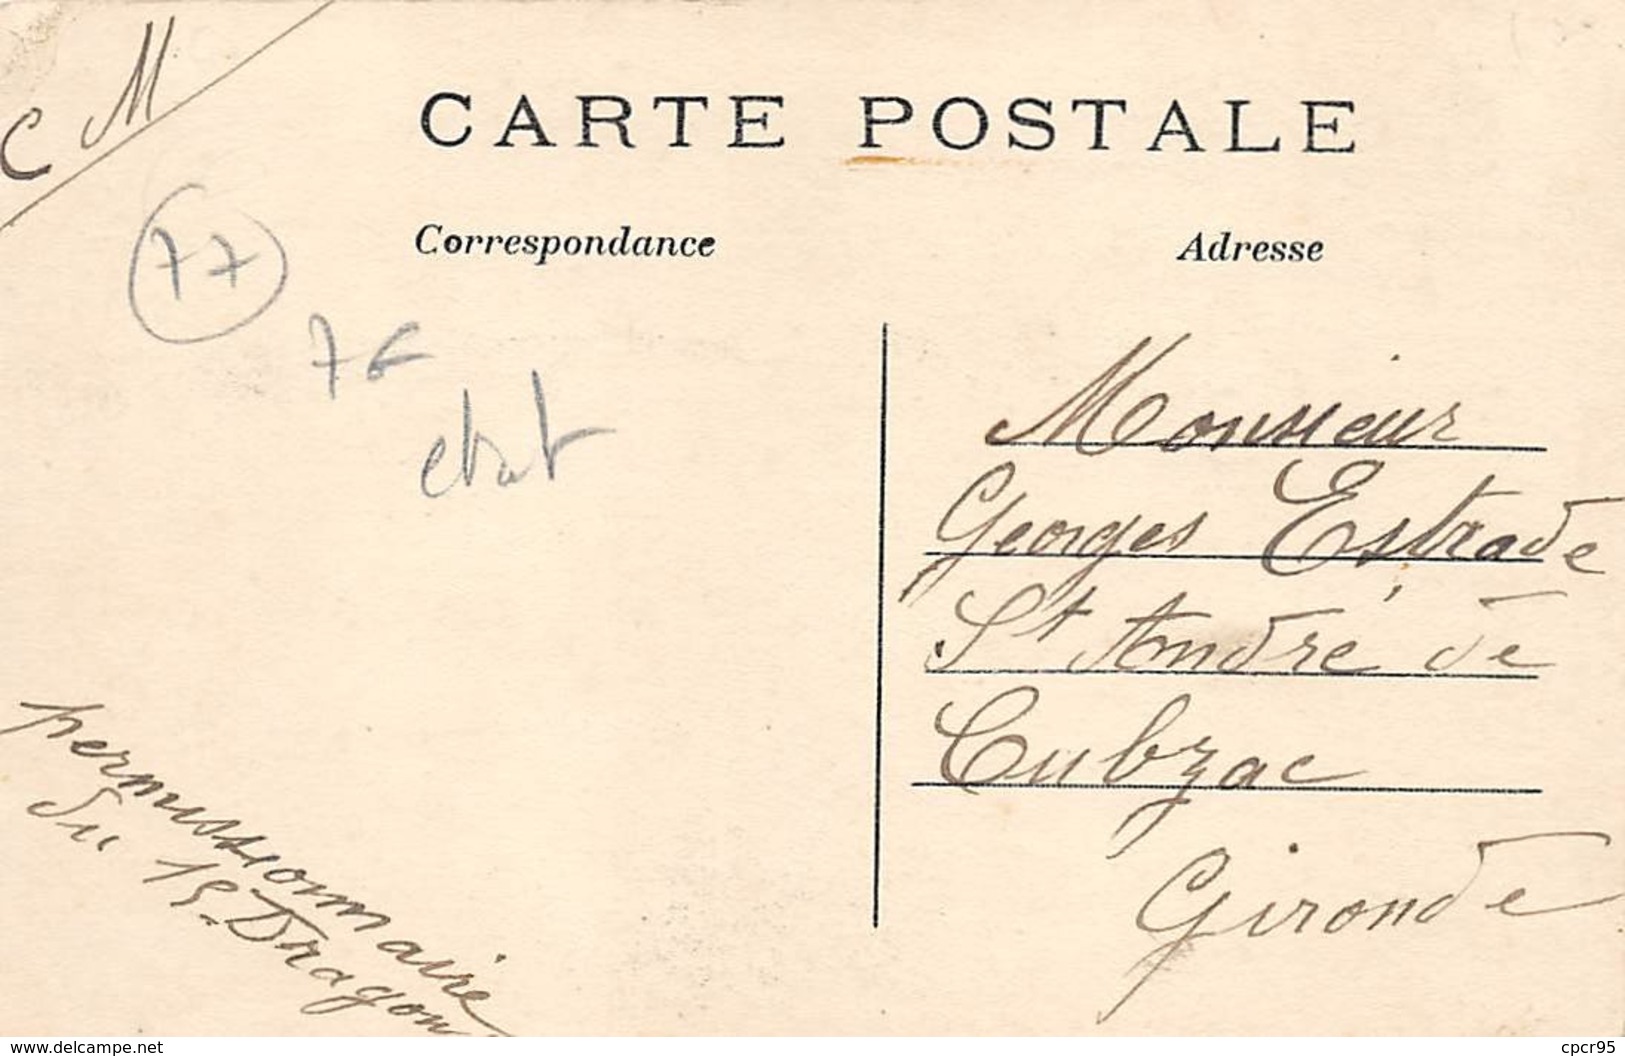 C M
CARTE POSTALE
Correspondance
Adresse
77
7€
Monsieur
Georges Estrade
St André de
Cubzac
Gironde
permissionnaire
du 15e Dragon
www.delcampe.net
cpcr95